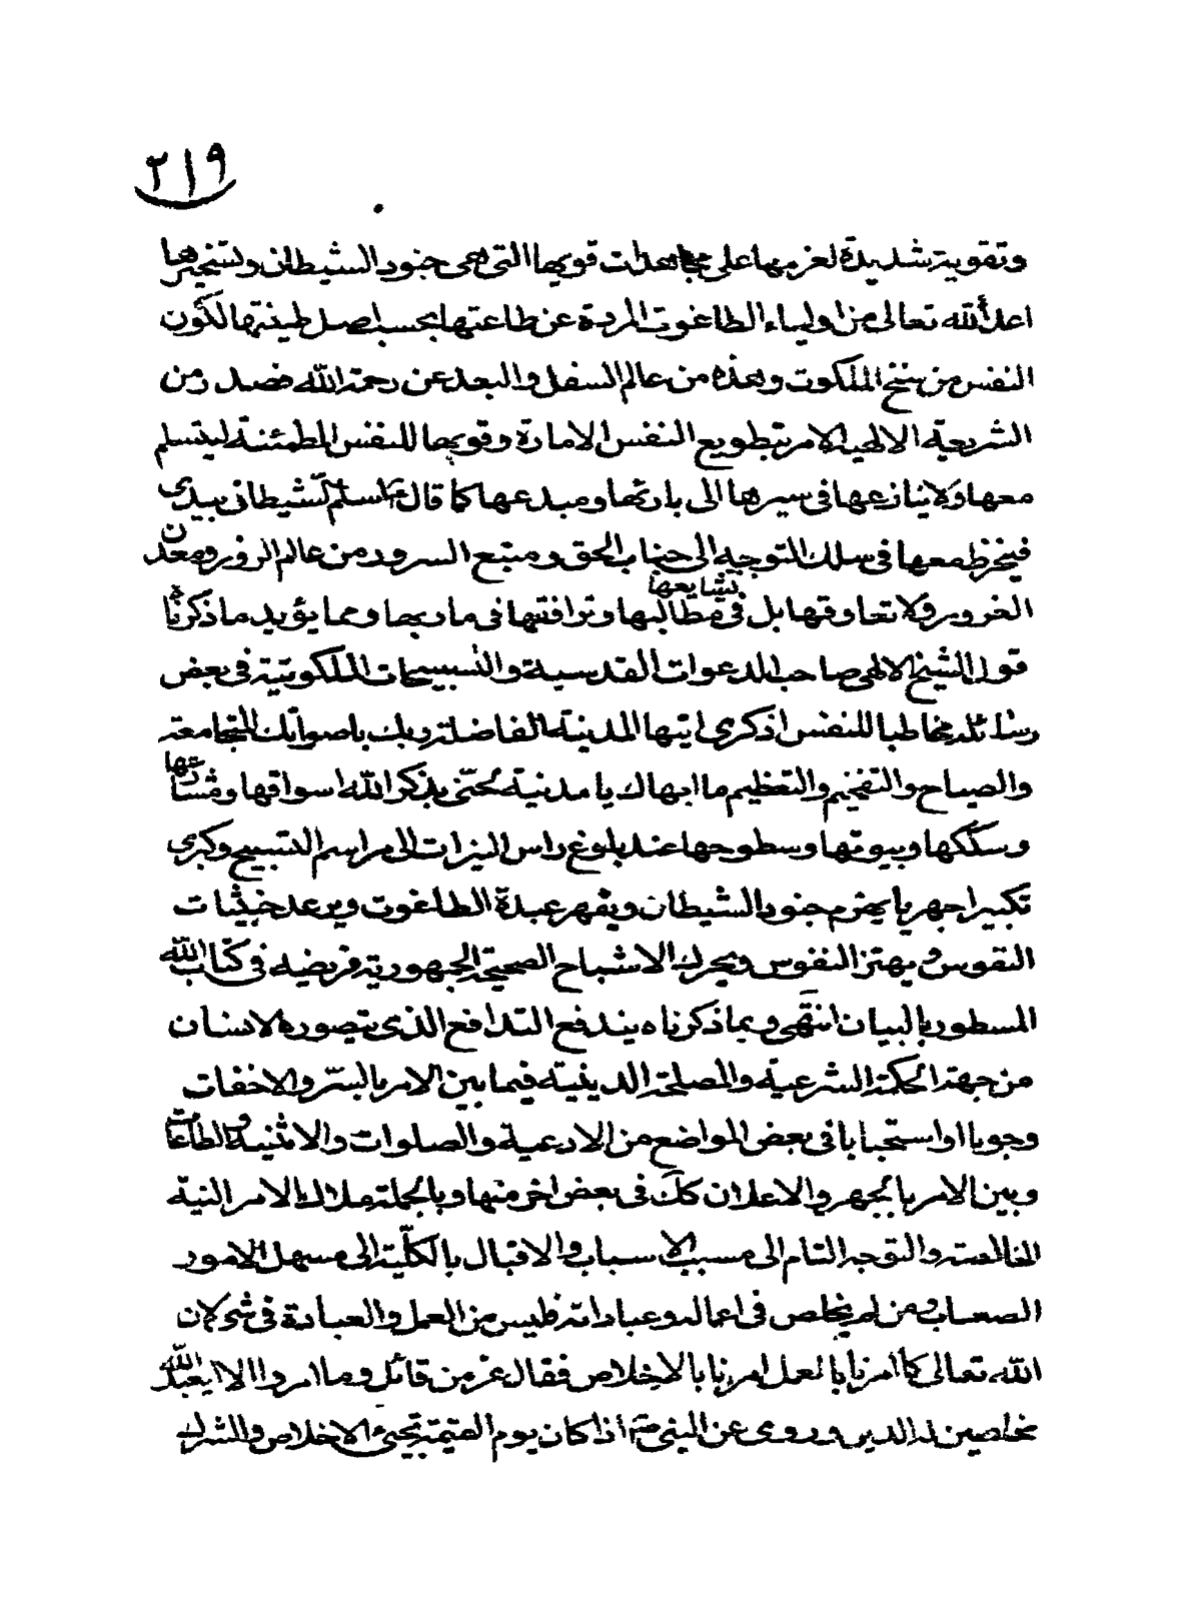 ٢١٩
وتقوية شديدة لعزمها على مجاهدات قويها التى هى جنود الشيطان وتسخيرها
اعداء الله تعالى من اولياء الطاغوت المردة عن طاعتها بحسب اصل طينتها لكون
النفس من سنخ الملكوت وهذه من عالم السفل والبعد عن رحمة الله فصد رمن
الشريعة الالهية الامر بتطويع النفس الامارة وقويها للنفس المطمئنة ليتسلم
معها ولا ينازعها فى سيرها الى بارئها ومبدعها كما قال اسلم شيطانى بيدى
فينخرط معها فى سلك التوجه الى جناب الحق ومنبع السرور من عالم الزور ومعدن
الغرور ولا تعاوقها بل تشايعها فى مطالبها وترافقها فى ماربها ومما يؤيد ما ذكرنا
قول الشيخ الالهى صاحب الدعوات القدسية والتسبيحات الملكوتية فى بعض
رسائله مخاطبا للنفس اذكرى ايتها المدينة الفاضلة ربك باصواتك الجامعة
والصياح والتفخيم والتعظيم ما ابهاك يا مدنية بذكر الله اسواقها
وسككها وبيوتها وسطوحها عند بلوغ راس النيرات الى مراسم التسبيح وكبرى
تكبيرا جهريا يهزم جنود الشيطان ويقهر عبدة الطاغوت ويرعد خبيثات
النفوس ويهتز النفوس ويحرك الاشباح الصحيحة الجهورية فريضه فى كتاب الله
المسطور بالبيان انتهى وبما ذكرناه يندفع التدافع الذى يتصوره الانسان
من جهة الحكمة الشرعية والمصلحة الدينية فيما بين الامر بالسر والاخفات
وجوبا او استحبابا فى بعض المواضع من الادعية والصلوات والاثنية والطاعات
وبين الامر بالجهر والاعلان كك فى بعض اخر منها وبالجملة ملاك الامر النية
الخالصة والتوجه التام الى مسبب الاسباب والاقبال بالكلية الى مسهل الامور
الصعاب ومن لم يخلص فى اعماله وعباداته فليس من العمل والعبادة فى شى لان
الله تعالى كما امرنا بالعمل امرنا بالاخلاص فقال عز من قائل وما امروا الا ليعبد الله
مخلصين له الدين وروى عن النبى ص اذا كان يوم القيمة يجئ الاخلاص والشرك